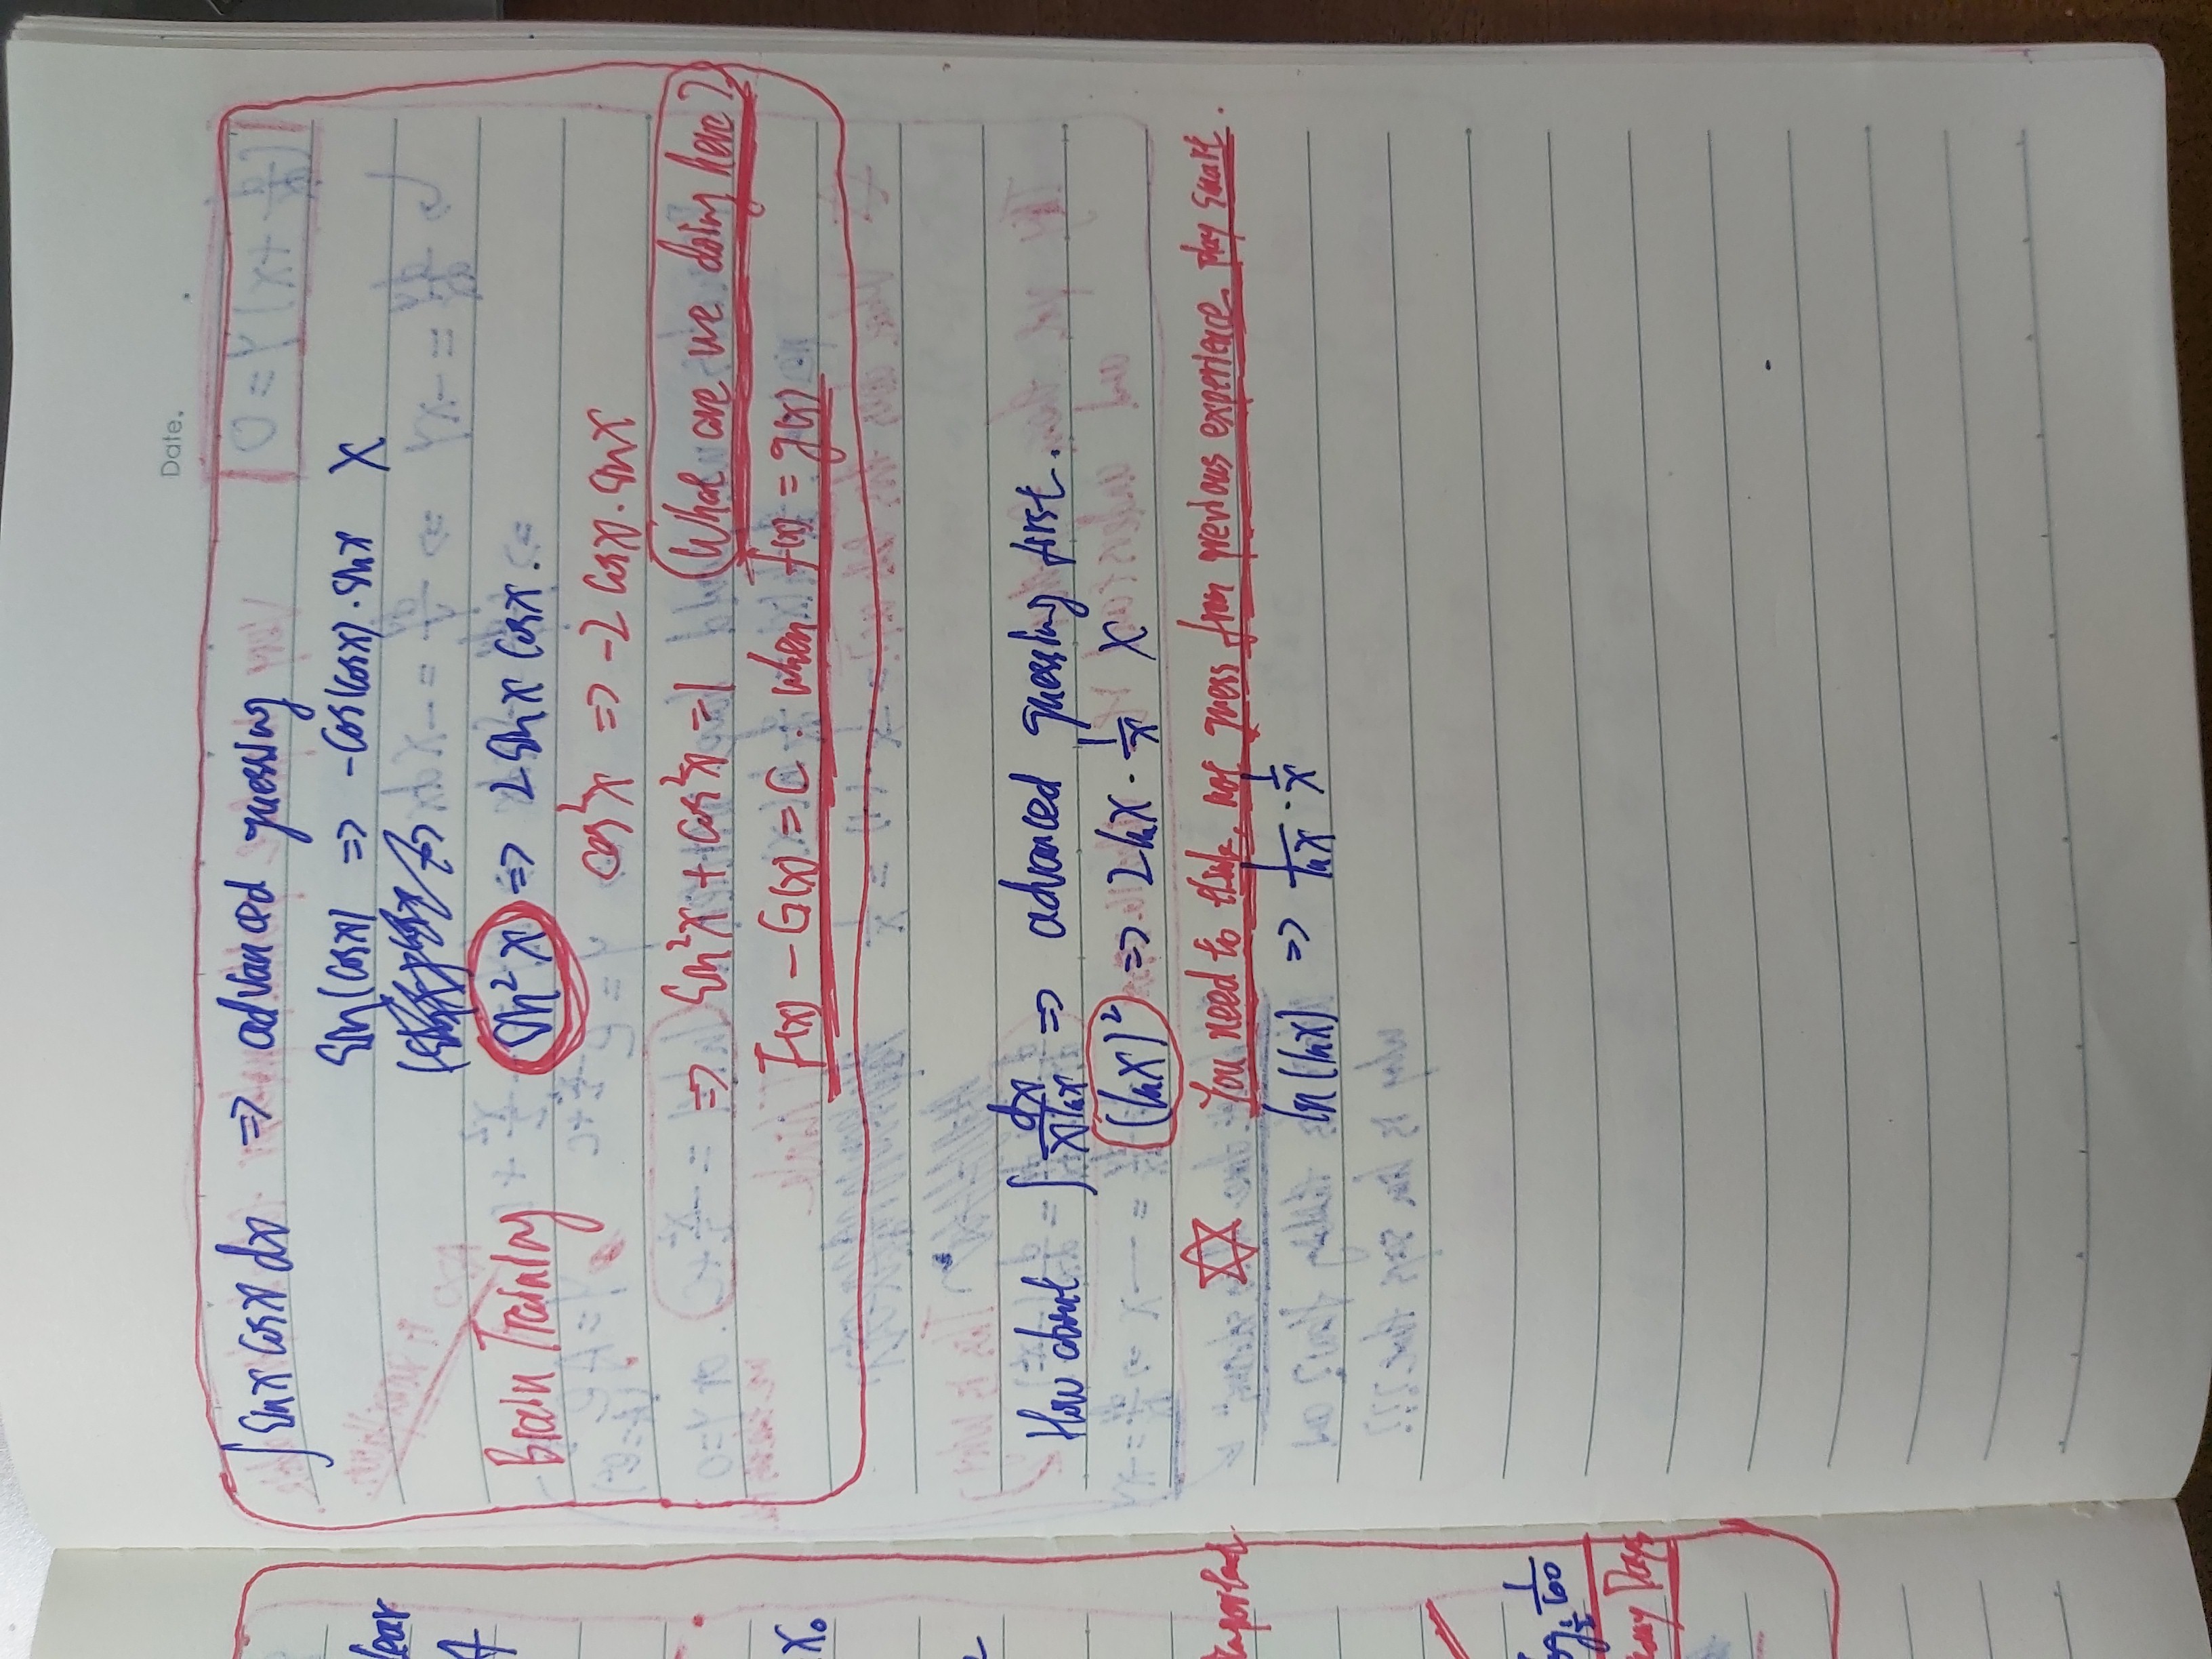 Date.
∫ sinx cosx dx => advanced guessing
sin(cosx) => -cos(cosx)·sinx X
Brain Training sin²x => 2 sinx cosx.
cos²x => -2 cosx·sinx
=> sin²x + cos²x = 1 (What are we doing here?)
F(x) - G(x) = C. when f(x) = g(x)
How about ∫ dx/(x lnx) => advanced guessing first.
(lnx)² => 2lnx · 1/x X
You need to think, not guess from previous experience play smart.
ln(lnx) => 1/lnx · 1/x
lear
A
x₀
Important
1/60
Days